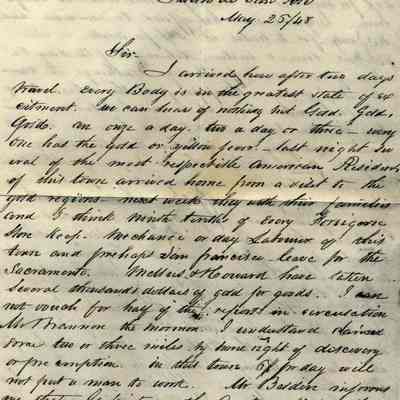 May 25/48
Sir
I arrived here after two days
travel. Every Body is in the greatest state of ex
citement. we can hear of nothing but Gold, Gold,
Gold. an onze a day, two a day or three – every
one has the gold or yellow fever – last night sev
eral of the most respectible American Residents
of this town arrived home from a visit to the
gold regions next week they with their families
and I think nine tenths of every Foreigner
Store Keep. Mechanic or day Laborer of this
town and perhaps San francisco leave for the
Sacramento. Mellus & Howard have taken
several thousands dollars of gold for goods. I can
not vouch for half of the reports in circulation
Mr Brannon the mormon I understand claimed
some two or three miles by some right of discovery
or pre emption. in this town $ pr day will
not put a man to work. Mr Belden informs
me that